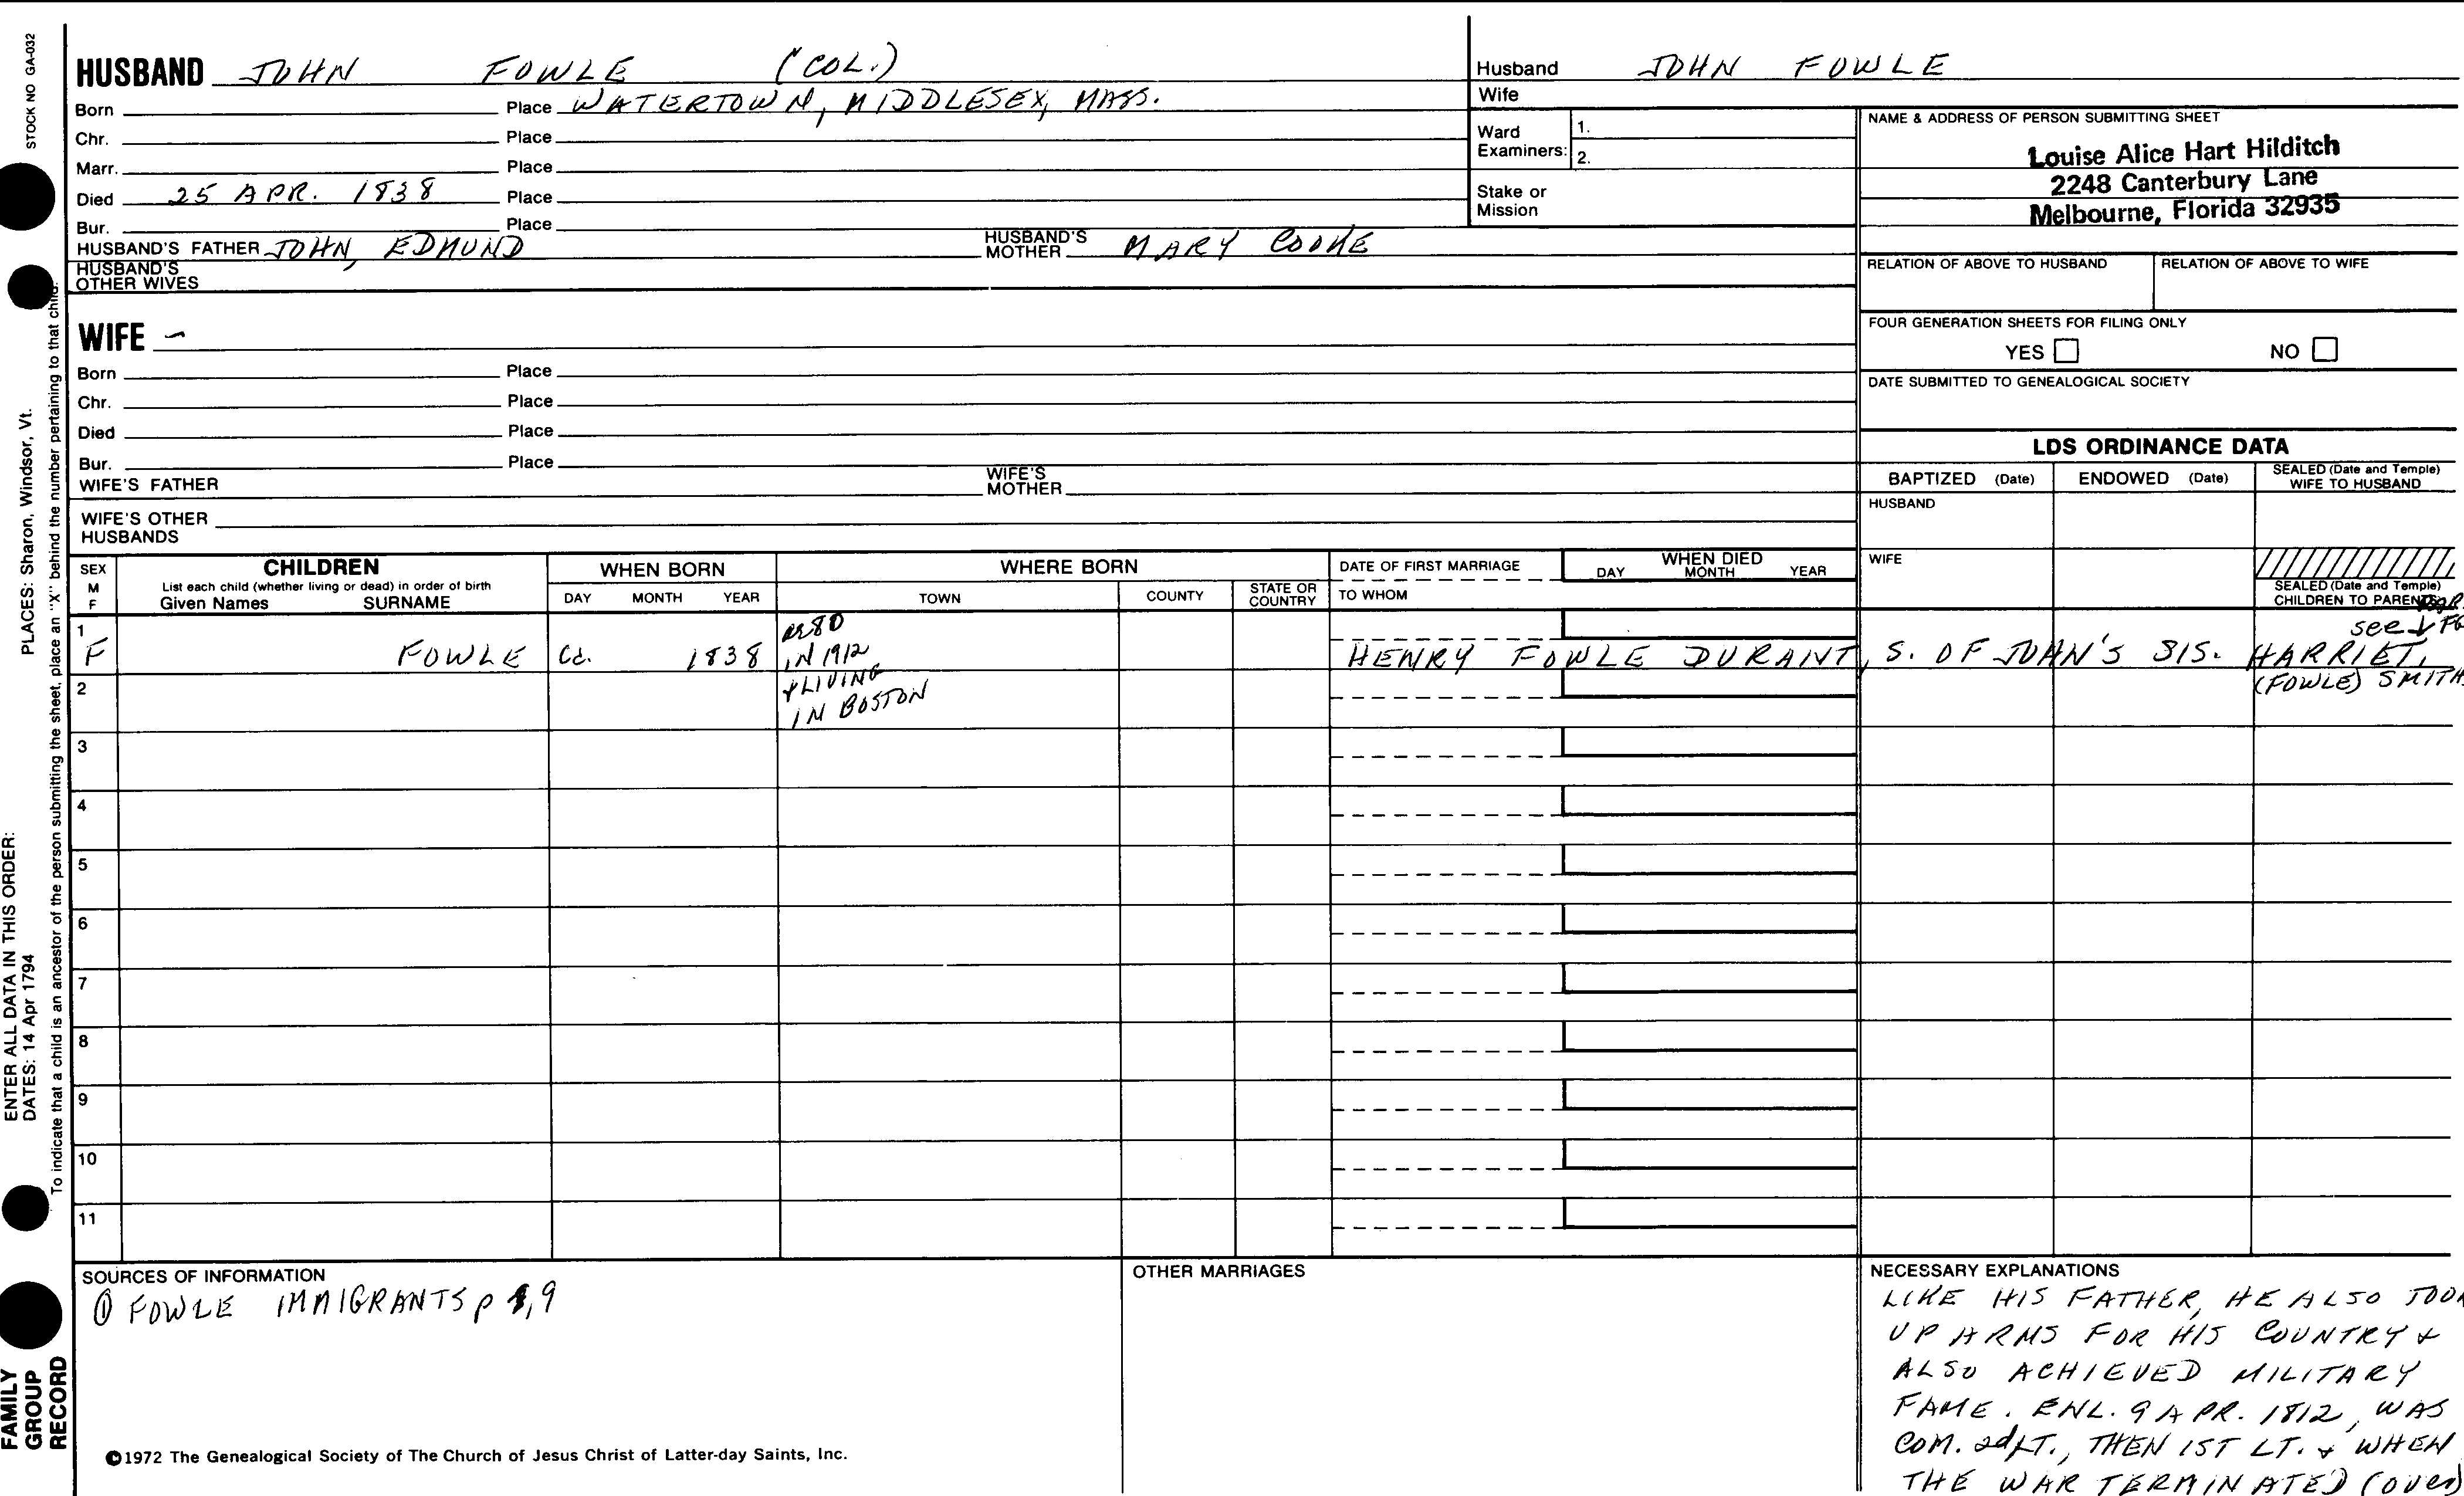 STOCK NO GA-032
HUSBAND JOHN FOWLE (COL.)
Born Place WATERTOWN, MIDDLESEX, MASS.
Chr. Place
Marr. Place
Died 25 APR. 1838 Place
Bur. Place
HUSBAND'S FATHER JOHN, EDMUND HUSBAND'S MOTHER MARY COOKE
HUSBAND'S OTHER WIVES
WIFE –
Born Place
Chr. Place
Died Place
Bur. Place
WIFE'S FATHER WIFE'S MOTHER
WIFE'S OTHER HUSBANDS
Husband JOHN FOWLE
Wife
Ward Examiners: 1.
2.
Stake or Mission
NAME & ADDRESS OF PERSON SUBMITTING SHEET
Louise Alice Hart Hilditch
2248 Canterbury Lane
Melbourne, Florida 32935
RELATION OF ABOVE TO HUSBAND RELATION OF ABOVE TO WIFE
FOUR GENERATION SHEETS FOR FILING ONLY
YES NO
DATE SUBMITTED TO GENEALOGICAL SOCIETY
LDS ORDINANCE DATA
BAPTIZED (Date) ENDOWED (Date) SEALED (Date and Temple) WIFE TO HUSBAND
HUSBAND
WIFE
SEALED (Date and Temple) CHILDREN TO PARENTS
SEX M F CHILDREN WHEN BORN WHERE BORN DATE OF FIRST MARRIAGE WHEN DIED
List each child (whether living or dead) in order of birth
Given Names SURNAME DAY MONTH YEAR TOWN COUNTY STATE OR COUNTRY TO WHOM DAY MONTH YEAR
1 F FOWLE Ca. 1838 80 IN 1912 & LIVING IN BOSTON HENRY FOWLE DURANT, S. OF JOHN'S SIS. HARRIET, (FOWLE) SMITH
see
2
3
4
5
6
7
8
9
10
11
SOURCES OF INFORMATION
① FOWLE IMMIGRANTS p 9
OTHER MARRIAGES
NECESSARY EXPLANATIONS
LIKE HIS FATHER, HE ALSO TOOK
UP ARMS FOR HIS COUNTRY &
ALSO ACHIEVED MILITARY
FAME. ENL. 9 APR. 1812, WAS
COM. 2d LT., THEN 1ST LT. & WHEN
THE WAR TERMINATED (over)
©1972 The Genealogical Society of The Church of Jesus Christ of Latter-day Saints, Inc.
FAMILY GROUP RECORD
ENTER ALL DATA IN THIS ORDER:
DATES: 14 Apr 1794 PLACES: Sharon, Windsor, Vt.
To indicate that a child is an ancestor of the person submitting the sheet, place an "X" behind the number pertaining to that child.